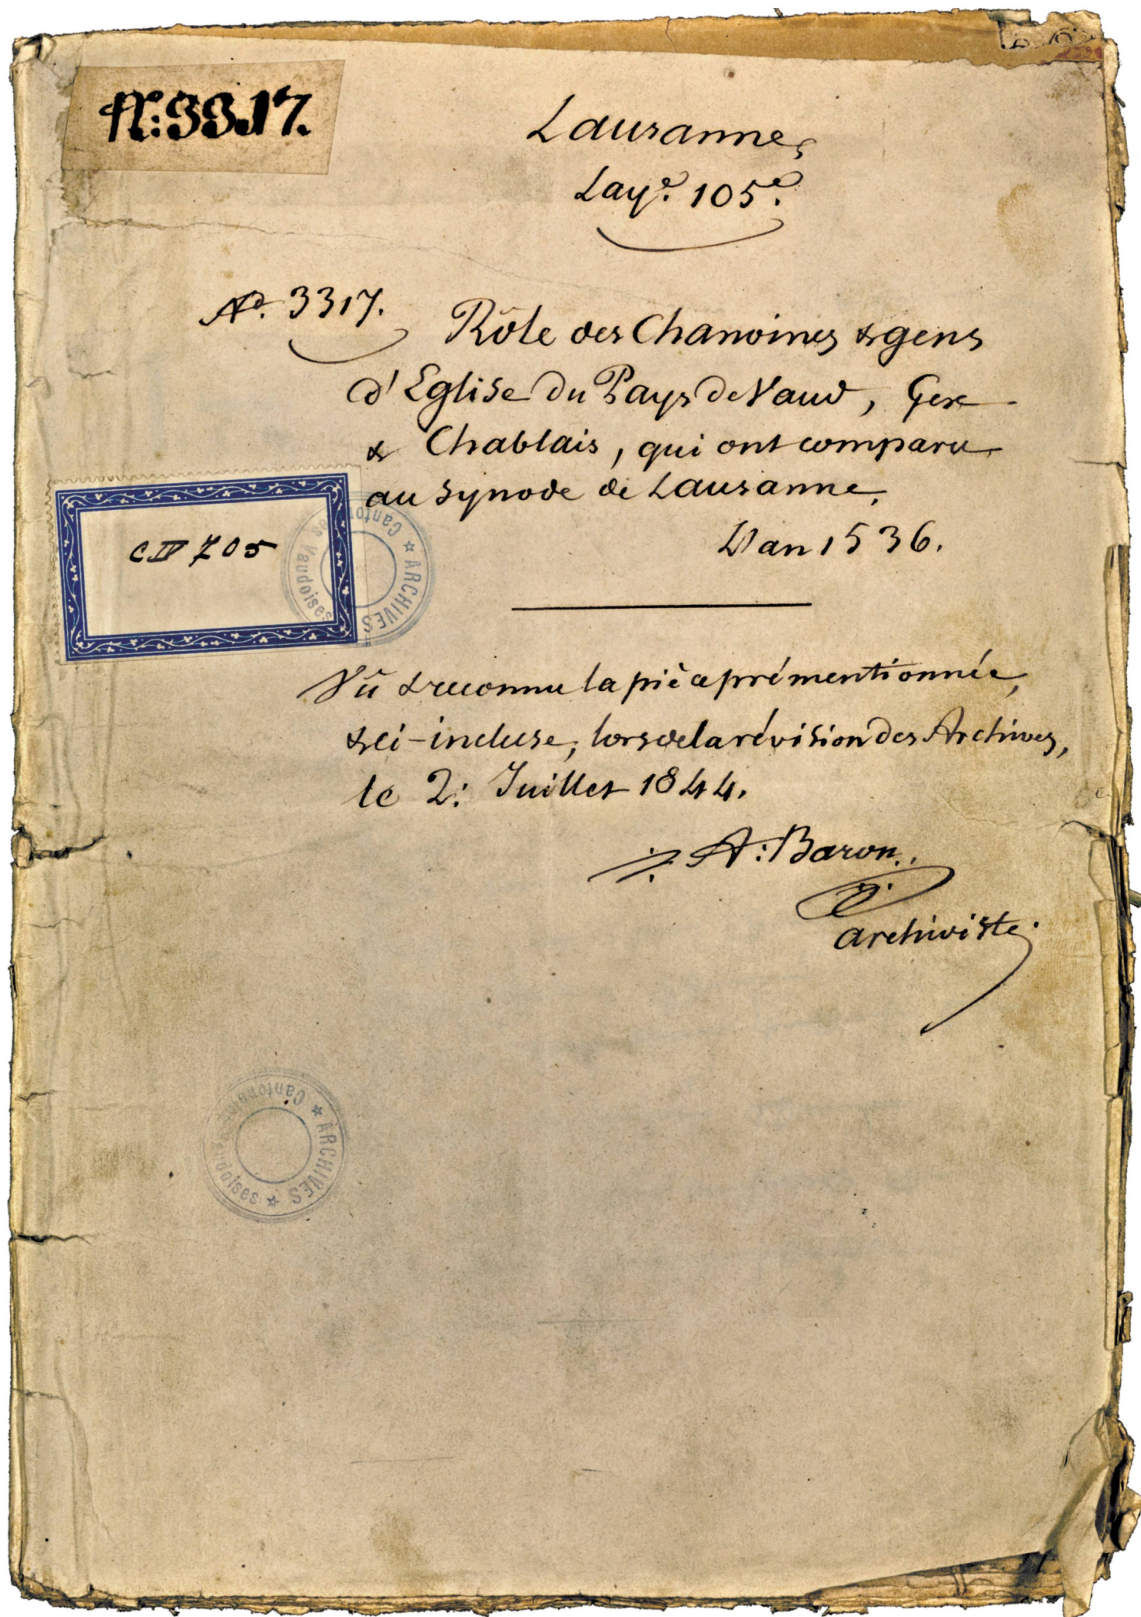 N.º: 3317.
Lausanne,
Lay.e 105.e
Nº. 3317. Rôle des Chanoines & gens
d'Eglise du Pays de Vaud, Gex
& Chablais, qui ont comparu
au Synode de Lausanne,
L'an 1536.
C IV 705
ARCHIVES Cantonales Vaudoises
Vû & reconnu la pièce prémentionnée,
& ci-incluse, lors de la révision des Archives,
le 2: Juillet 1844.
A: Baron.
archiviste.
ARCHIVES Cantonales Vaudoises